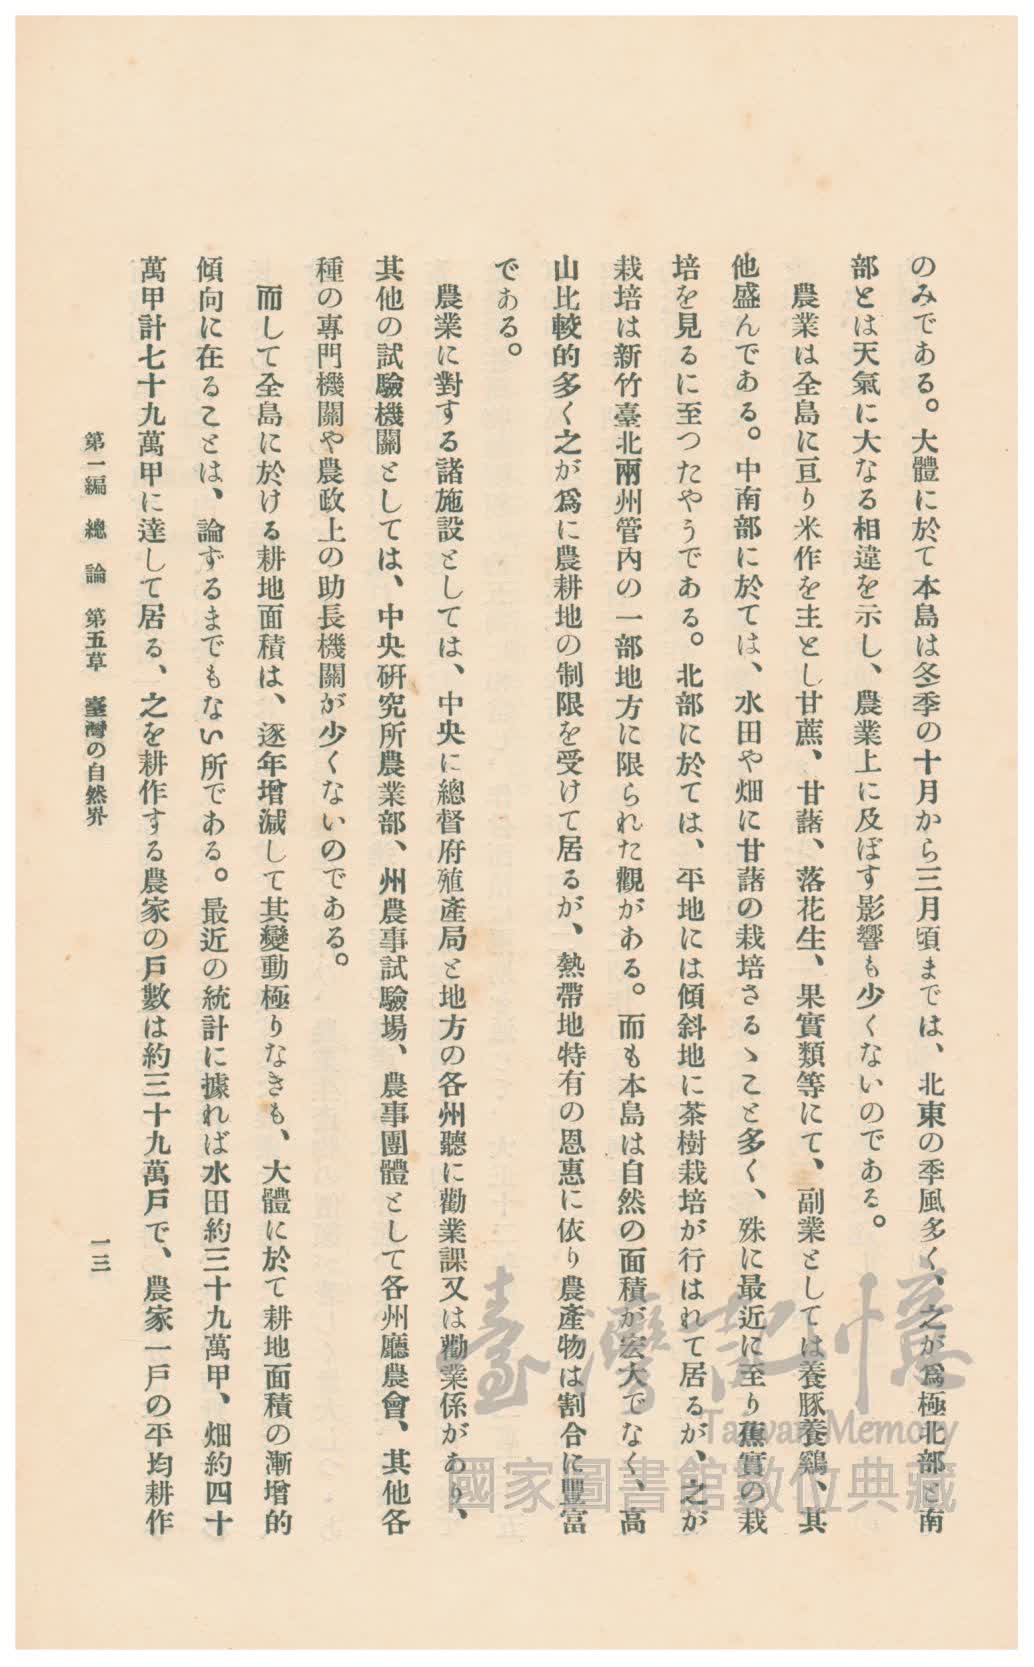 のみである。大體に於て本島は冬季の十月から三月頃までは、北東の季風多く、之が爲極北部と南
部とは天氣に大なる相違を示し、農業上に及ぼす影響も少くないのである。
農業は全島に亘り米作を主とし甘蔗、甘藷、落花生、果實類等にて、副業としては養豚養鷄、其
他盛んである。中南部に於ては、水田や畑に甘藷の栽培さるゝこと多く、殊に最近に至り蕉實の栽
培を見るに至つたやうである。北部に於ては、平地には傾斜地に茶樹栽培が行はれて居るが、之が
栽培は新竹臺北兩州管内の一部地方に限られた觀がある。而も本島は自然の面積が宏大でなく、高
山比較的多く之が爲に農耕地の制限を受けて居るが、熱帶地特有の恩惠に依り農產物は割合に豐富
である。
農業に對する諸施設としては、中央に總督府殖產局と地方の各州聽に勸業課又は勸業係があり、
其他の試驗機關としては、中央硏究所農業部、州農事試驗場、農事團體として各州廳農會、其他各
種の專門機關や農政上の助長機關が少くないのである。
而して全島に於ける耕地面積は、逐年增減して其變動極りなきも、大體に於て耕地面積の漸增的
傾向に在ることは、論ずるまでもない所である。最近の統計に據れば水田約三十九萬甲、畑約四十
萬甲計七十九萬甲に達して居る、之を耕作する農家の戶數は約三十九萬戶で、農家一戶の平均耕作
第一編 總論 第五草 臺灣の自然界
一三
臺灣記憶
Taiwan Memory
國家圖書館數位典藏